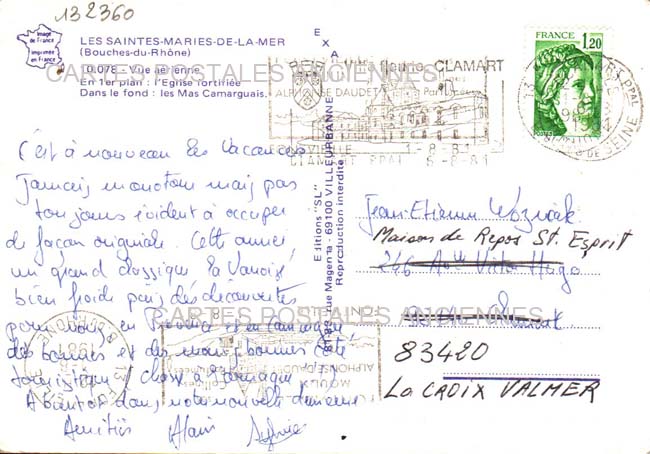 132360
Image de France
Imprimée en France
LES SAINTES-MARIES-DE-LA-MER
(Bouches-du-Rhône)
10.078 - Vue aérienne.
En 1er plan : l'Eglise fortifiée
Dans le fond : les Mas Camarguais.
CARTES POSTALES ANCIENNES
EXA
Editions "SL"
69100 VILLEURBANNE
Reproduction interdite
Ville fleurie CLAMART
ALPHONSE DAUDET
CLAMART PPAL
1-8-81
FRANCE
1,20
POSTES
C'est à nouveau les vacances
Jamais monotone mais pas
toujours évident à occuper
de façon originale. Cette année
un grand classique la Vanoise
bien froide puis des découvertes
pour nous en Provence et en Camargue
des bonnes et des moins bonnes côté
touristique
A bientôt dans notre nouvelle demeure
Amitiés Alain Sylvie
Jean-Etienne Wozniak
Maison de Repos St. Esprit
246 Victor Hugo
83420
La CROIX VALMER
CARTES POSTALES ANCIENNES